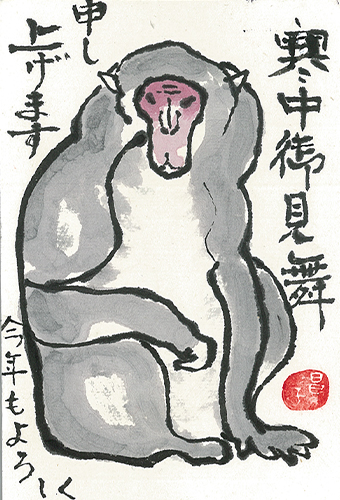 寒中御見舞
申し
上げます
今年もよろしく